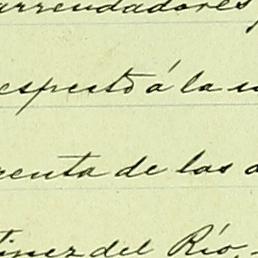 arrendadores
especto á la
renta de los
tinez del Río,